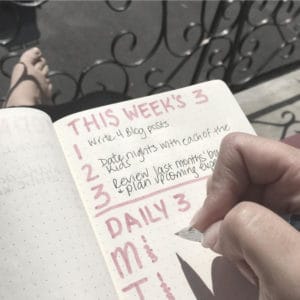 THIS WEEK'S 3
1 Write 4 Blog posts
2 Date nights with each of the
Kids
3 Review last months
+ Plan upcoming
DAILY 3
M
T